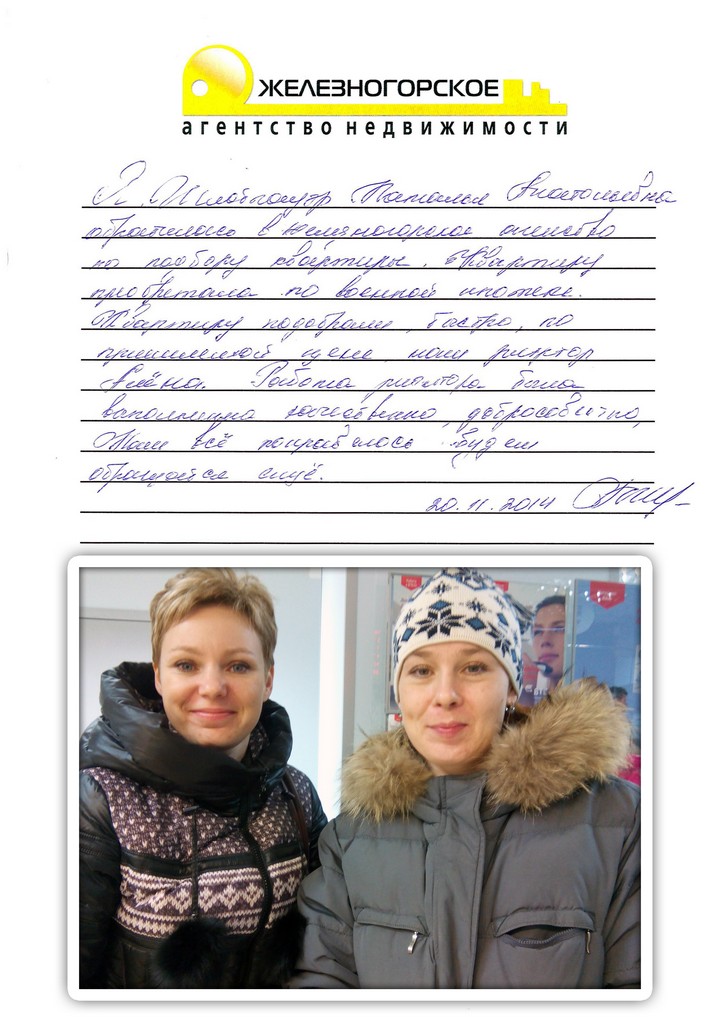 ЖЕЛЕЗНОГОРСКОЕ
агентство недвижимости
Я, Наталья Анатольевна
обратилась в Железногорское агенство
по подбору квартиры. Квартиру
приобретала по военной ипотеке.
Квартиру подобрали быстро, по
приемлемой цене, наш риэлтор
Алёна. Работа риэлтора была
выполнена качественно, добросовестно,
Нам всё понравилось. Будем
обращаться ещё.
20.11.2014